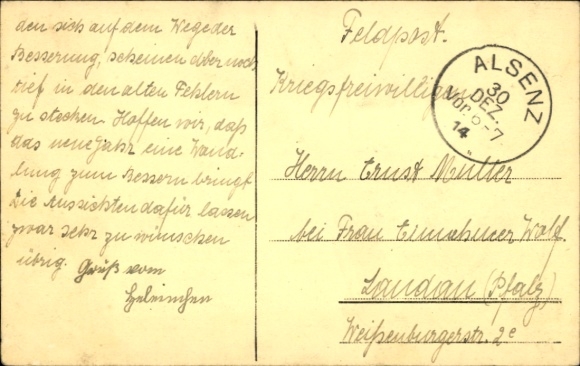 den sich auf dem Wege der
Besserung, scheinen aber noch
tief in den alten Fehlern
zu stecken. Hoffen wir, daß
das neue Jahr eine Wand-
lung zum Bessern bringt.
Die Aussichten dafür lassen
zwar sehr zu wünschen
übrig. Gruß vom
Feldpost.
Kriegsfreiwilligen
ALSENZ
30
DEZ.
Vor. 6-7
14
Herrn Ernst Müller
bei Frau Wolf.
Landau (Pfalz)
Weißenburgerstr. 2c